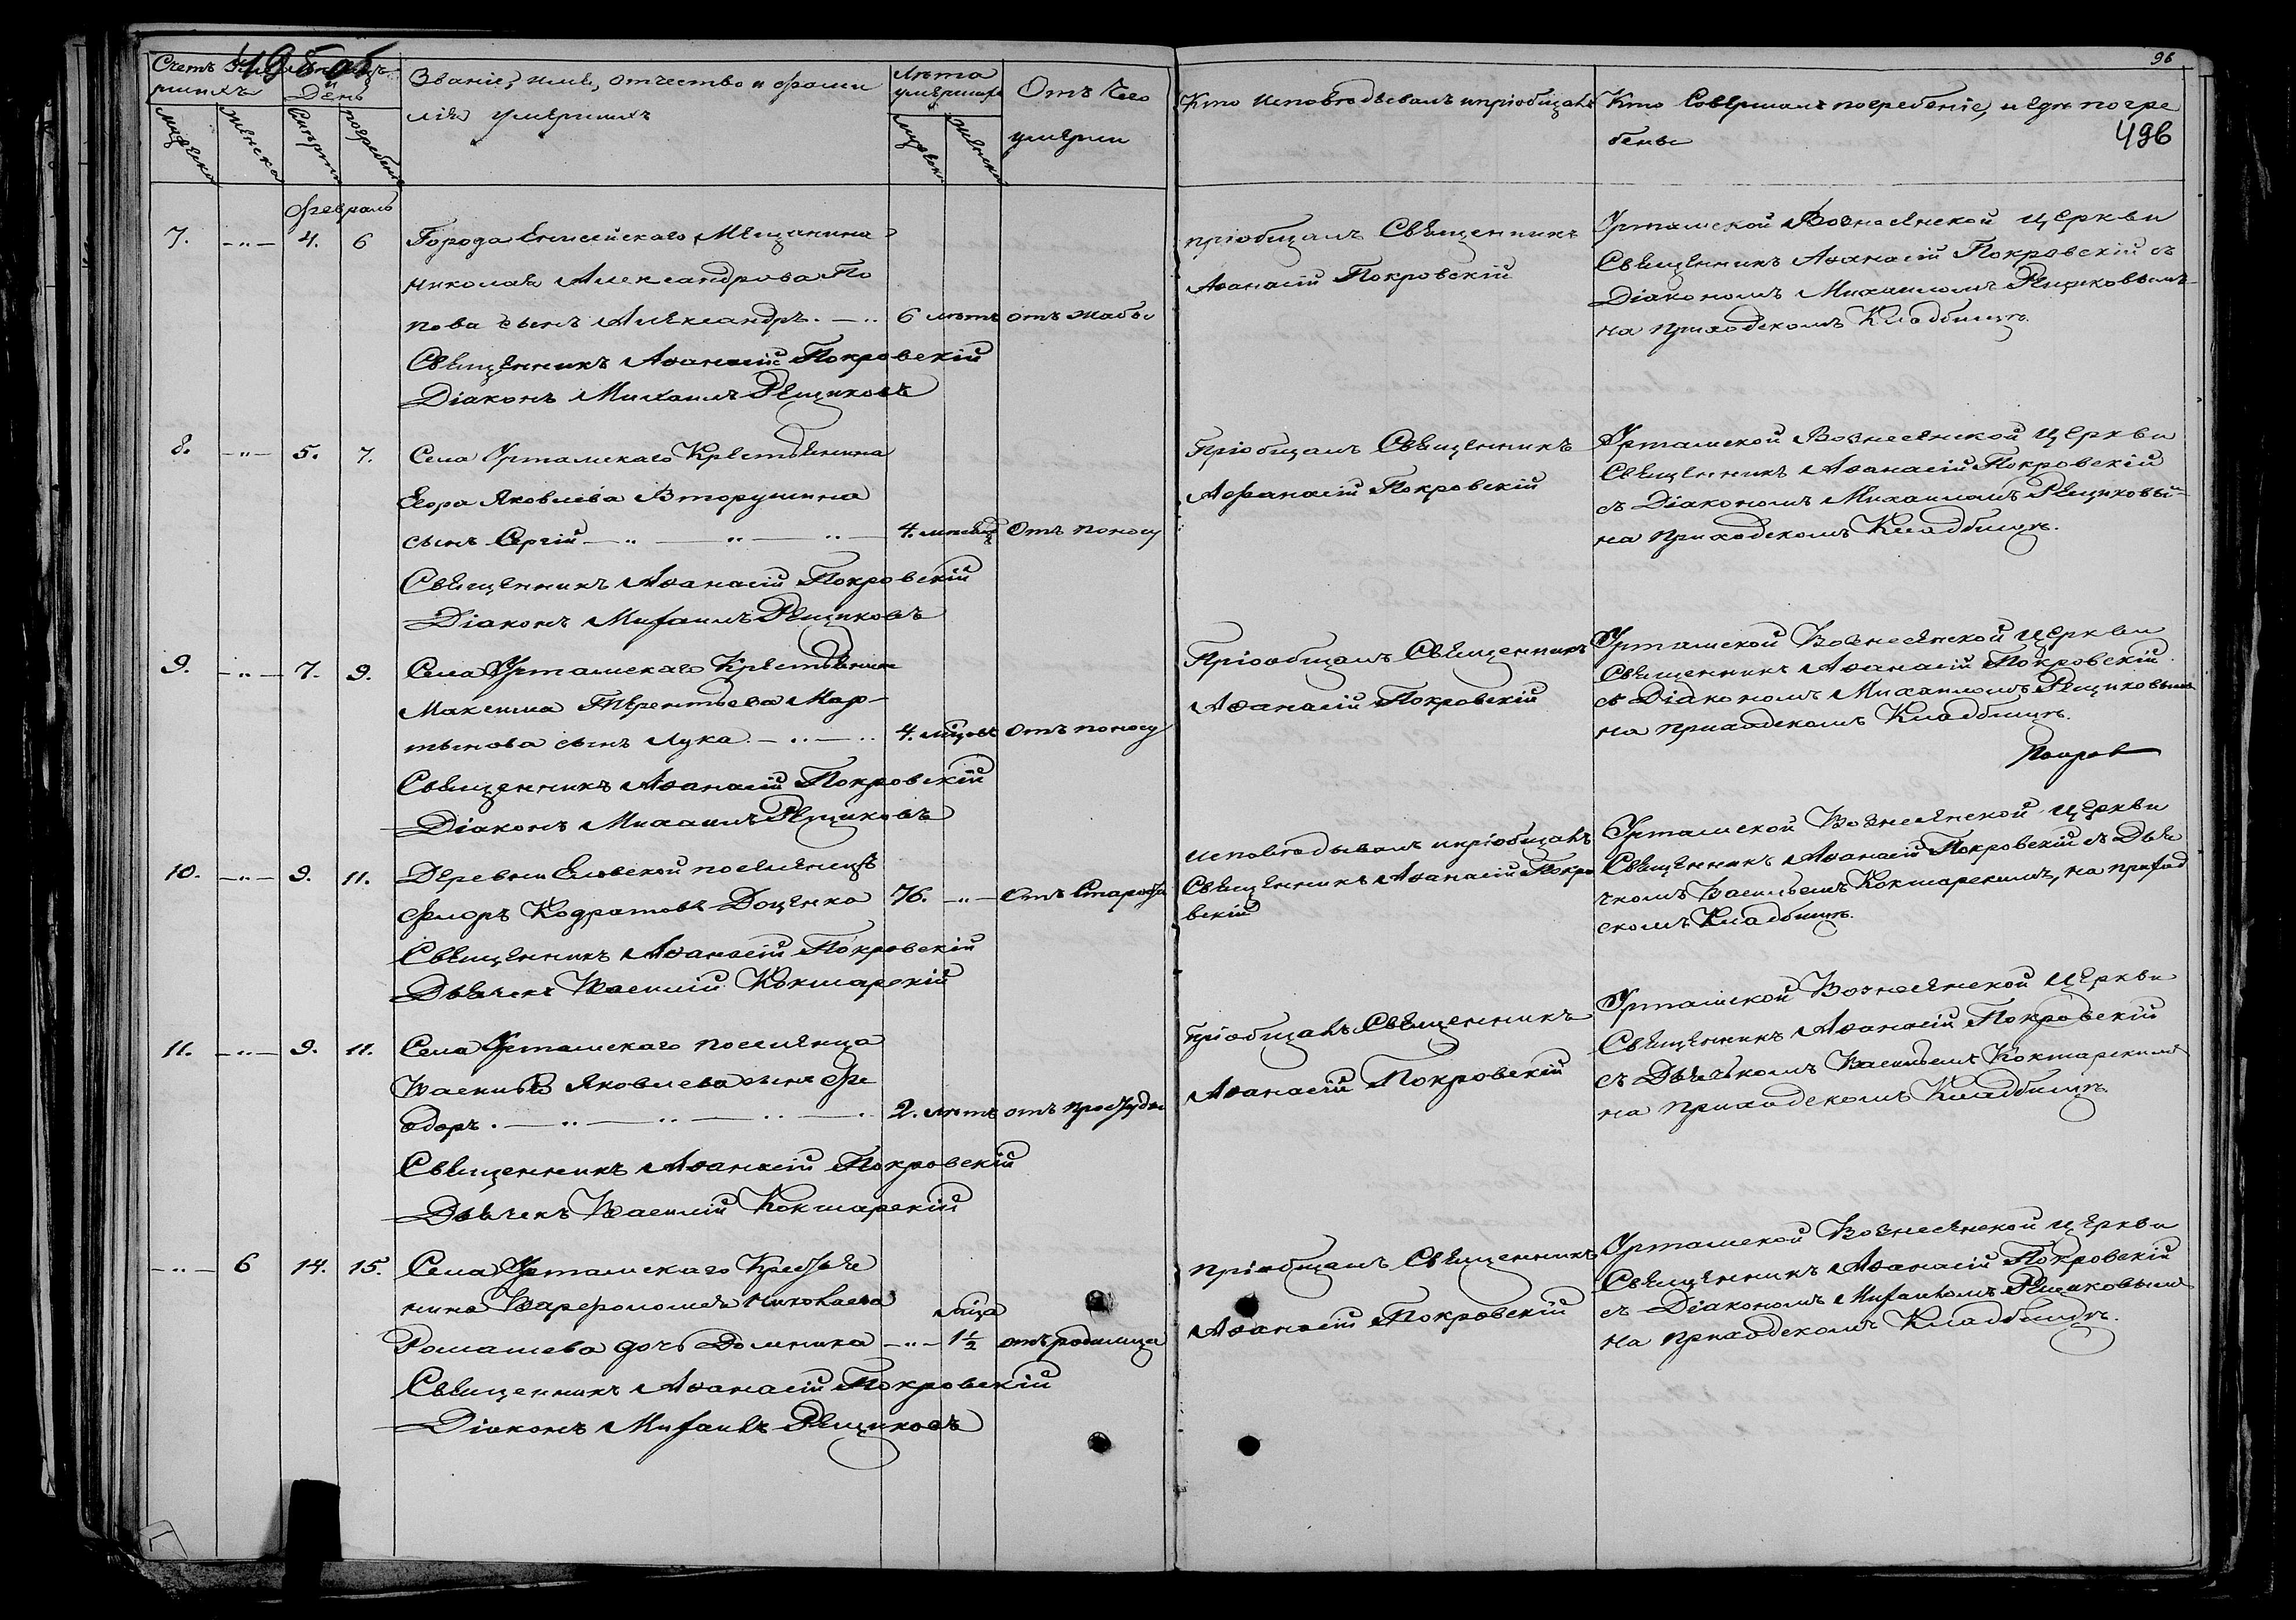 495 об
Счетъ умер
шихъ
Мѣсяцъ
и
День
Званіе, имя, отчество и фами
лія умершихъ
Лѣта
умершаго
Отъ чего
умерли
мужеска
женска
Смерти
погребенія
мужеска
женска
Февраль
7. -"- 4. 6 Города Енисейскаго Мещанина
Николая Александрова По
пова сынъ Александръ. 6 лѣтъ отъ жабы
Священникъ Аѳанасій Покровскій
Діаконъ Михаилъ Рещиковъ
8. -"- 5. 7. Села Уртамскаго Крестьянина
Егора Яковлева Вторушина
сынъ Сергій -"- -"- -"- 4. месяц Отъ поносу
Священникъ Аѳанасій Покровскій
Діаконъ Михаилъ Рещиковъ
9. -"- 7. 9. Села Уртамскаго Крестьянина
Максима Терентьева Мар-
тынова сынъ Лука. -"- 4. мцовъ Отъ поносу
Священникъ Аѳанасій Покровскій
Діаконъ Михаилъ Рещиковъ
10. -"- 9. 11. Деревни Еловской поселенецъ
Флоръ Кодратовъ Доценко 76. -"- Отъ Старости
Священникъ Аѳанасій Покровскій
Дьячекъ Василій Кокшарскій
11. -"- 9. 11. Села Уртамскаго поселенца
Василья Яковлева сынъ Фе
одоръ. -"- -"- -"- 2. лѣтъ отъ простуды
Священникъ Аѳанасій Покровскій
Дьячекъ Василій Кокшарскій
-"- 6 14. 15. Села Уртамскаго Крестья
нина Варфоломея Николаева мца
Ромашева дочь Домника -"- 1½ отъ родимца
Священникъ Аѳанасій Покровскій
Діаконъ Михаилъ Рещиковъ
96
Кто исповѣдывалъ и пріобщалъ
Кто Совершалъ погребеніе, и гдѣ погре
бены
496
пріобщалъ Священникъ
Аѳанасій Покровскій
Уртамской Вознесенской церкви
Священникъ Аѳанасій Покровскій съ
Діакономъ Михаиломъ Рещиковымъ
на приходскомъ Кладбищѣ.
Пріобщалъ Священникъ
Афанасій Покровскій
Уртамской Вознесенской церкви
Священникъ Аѳанасій Покровскій
съ Діакономъ Михаиломъ Рещиковы-
на приходскомъ Кладбищѣ.
Пріобщалъ Священникъ
Аѳанасій Покровскій
Уртамской Вознесенской церкви
Священникъ Аѳанасій Покровскій
съ Діакономъ Михаиломъ Рещиковымъ
на приходскомъ Кладбищѣ.
Покров
исповѣдывалъ и пріобщалъ
Священникъ Аѳанасій Покро
вскій
Уртамской Вознесенской церкви
Священникъ Аѳанасій Покровскій съ Дья
чкомъ Васильемъ Кокшарскимъ, на приход
скомъ Кладбищѣ.
пріобщалъ Священникъ
Аѳанасій Покровскій
Уртамской Вознесенской церкви
Священникъ Аѳанасій Покровскій
съ Дьячькомъ Васильемъ Кокшарскимъ
на приходскомъ Кладбищѣ.
пріобщалъ Священникъ
Аѳанасій Покровскій
Уртамской Вознесенской церкви
Священникъ Аѳанасій Покровскій
съ Діакономъ Михаиломъ Рещиковымъ
на приходскомъ Кладбищѣ.